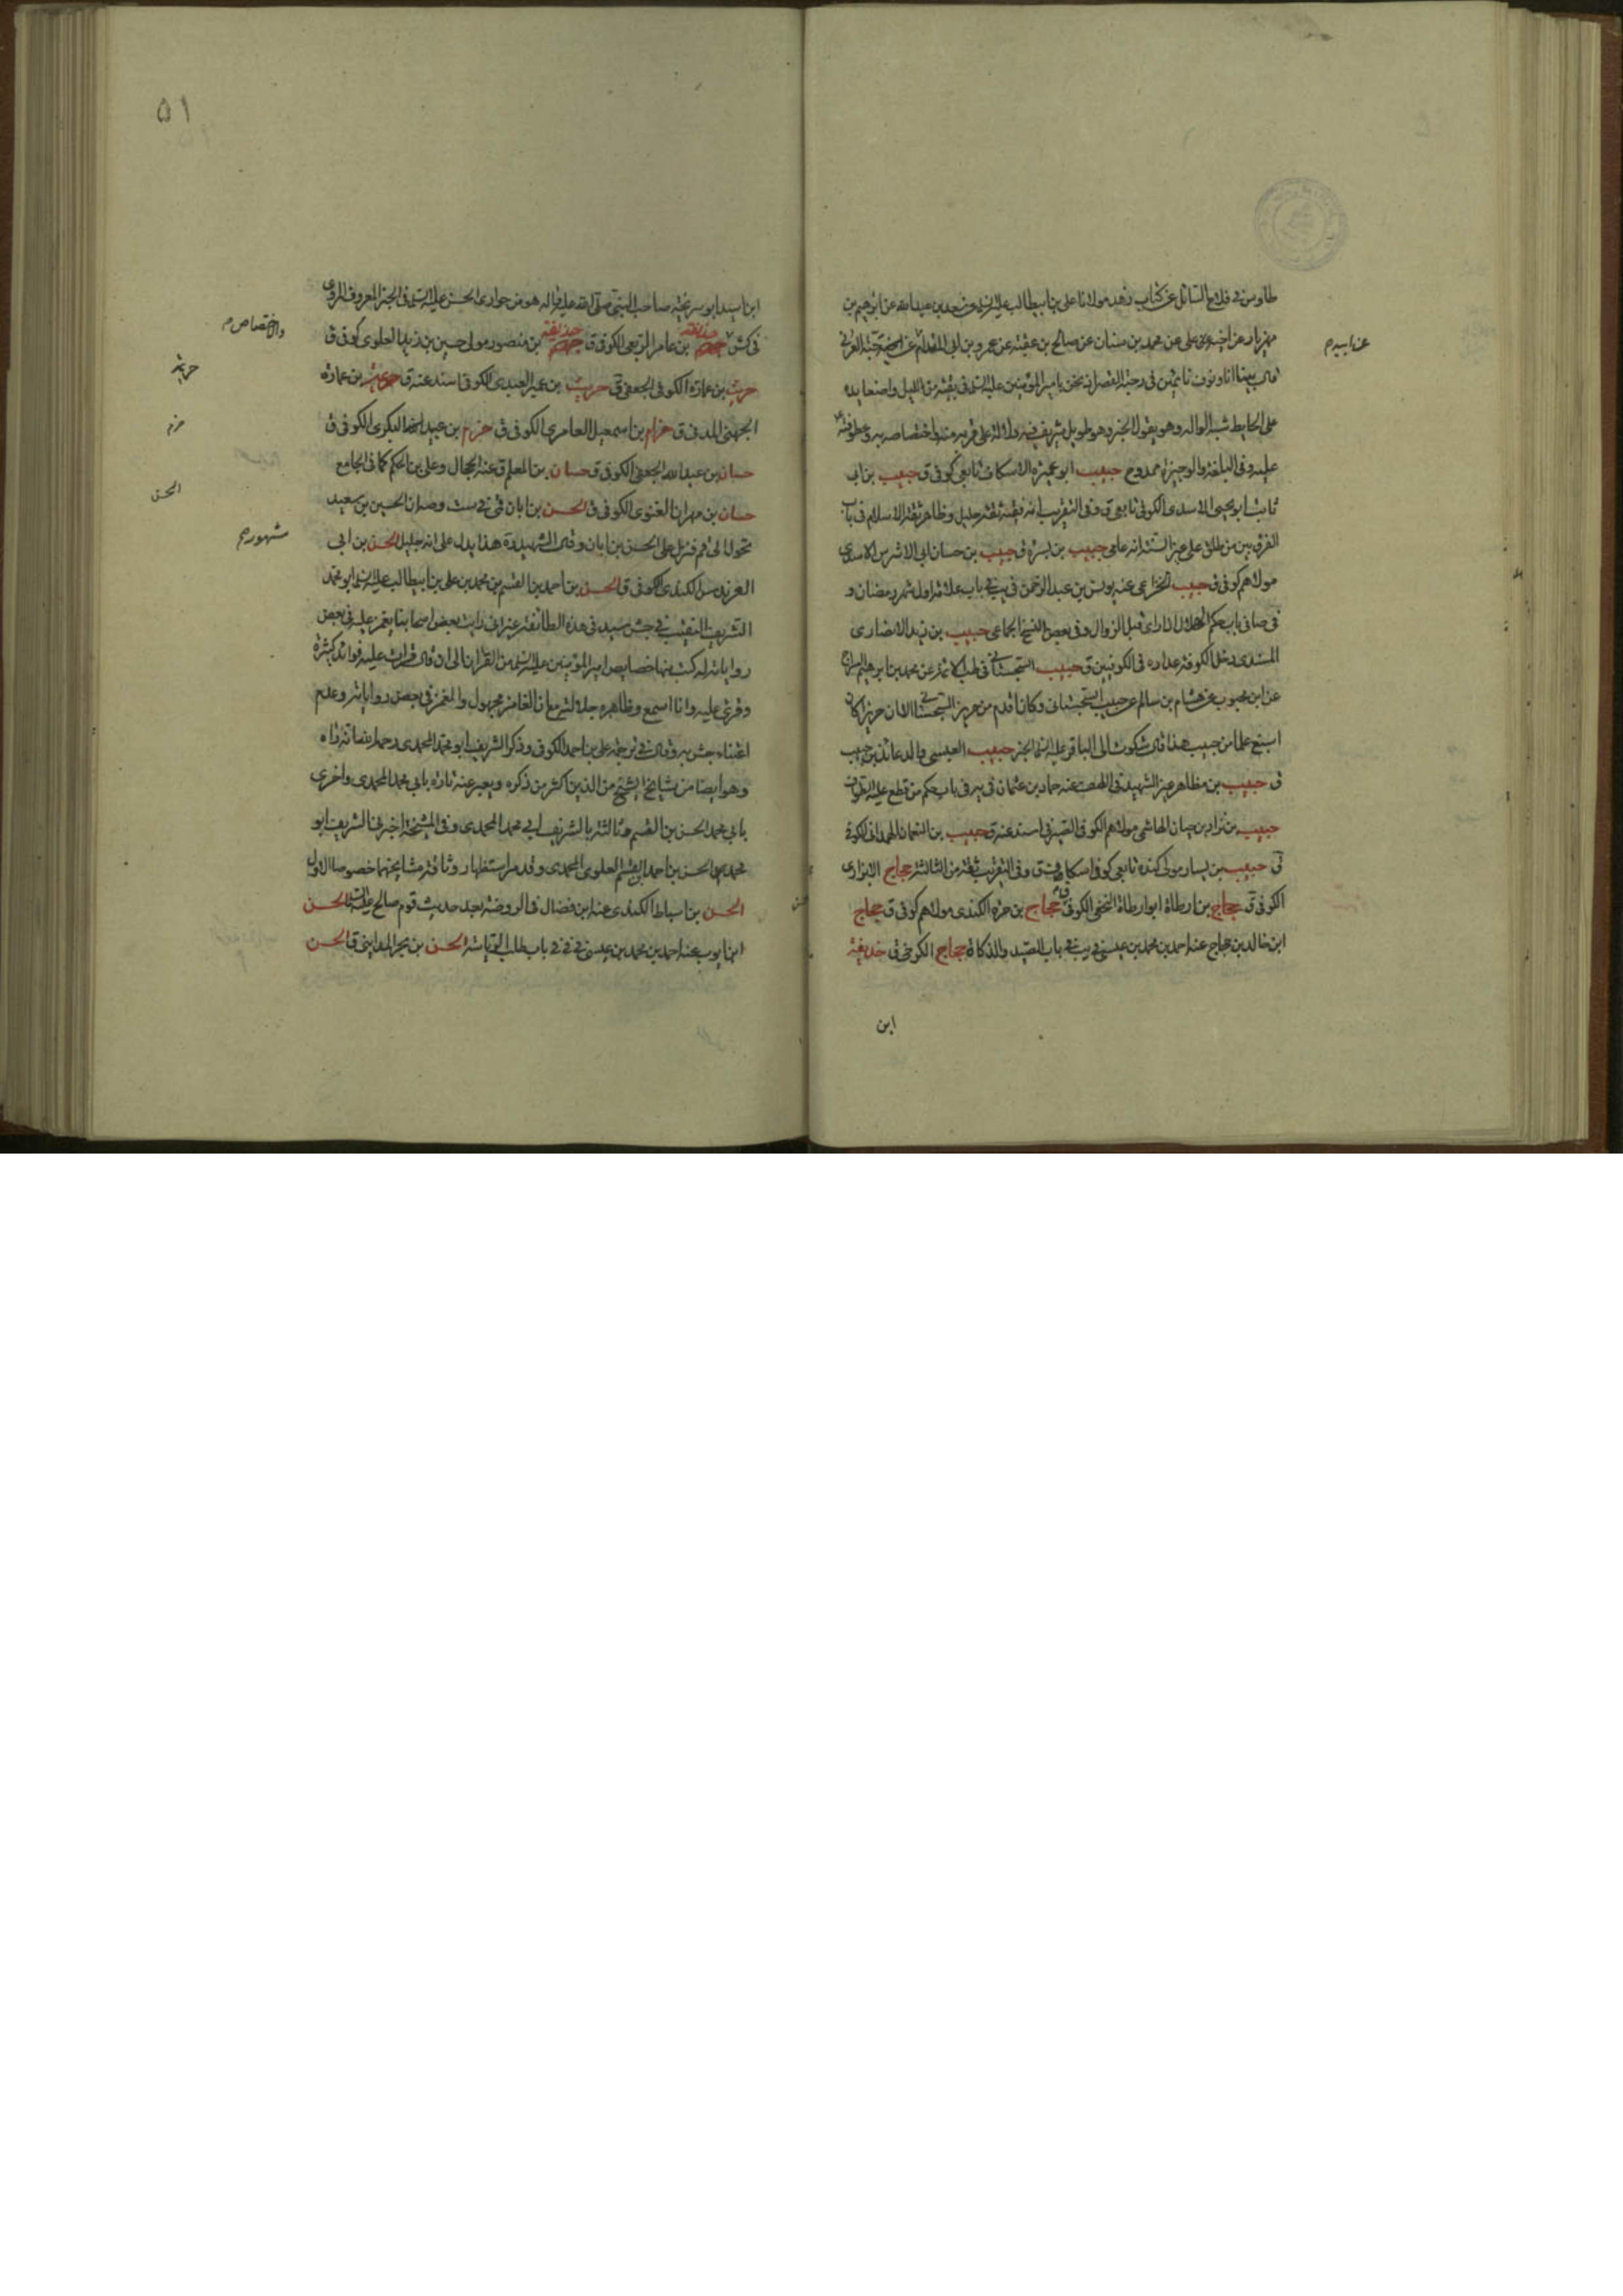 طاوس في فلاح السائل عن كتاب زهد مولانا علي بن ابيطالب عليه السلم عن سعد بن عبد الله عن ابرهيم بن
مهزيار عن اخيه علي عن محمد بن سنان عن صالح بن عقبة عن عمرو بن ابي المقدام عن حبة العرني
عن ابيه م
قال بينا انا ونوف نائمين في رحبة القصر اذ نحن بامير المؤمنين عليه السلم في بقية من الليل واضعا يده
على الحايط شبه الواله وهو يقول الخبر وهو طويل شريف فيه دلالة على قربه منه واختصاصه به وعطوفته
عليه وفي البلغة والوجيزة ممدوح حبيب ابو عميرة الاسكاف تابعي كوفي ق حبيب بن ابي
ثابت ابو يحيى الاسدي الكوفي تابعي ق وفي التقريب انه فقيه ثقة جليل وظاهر ثقة الاسلام في باب
الفرق بين من طلق على غير السنة انه عامي حبيب بن بسرة ق حبيب بن حسان ابي الاشرس الاسدي
مولاهم كوفي ق حبيب الخزاعي عنه يونس بن عبد الرحمن في يب في باب علامة اول شهر رمضان و
في صا في باب حكم الهلال اذا راى قبل الزوال وفي بعض النسخ الجماعي حبيب بن زيد الانصاري
المدني دخل الكوفة عداده في الكوفيين ق حبيب السجستاني في طب الائمة عن محمد بن ابرهيم السراج
عن ابن محبوب عن هشام بن سالم عن حبيب السجستاني وكان اقدم من حريز السجستاني الا ان حريز كان
اسبغ علما من حبيب هذا قال شكوت الى الباقر عليه السلم الخبر حبيب العبسي والد عائذ بن حبيب
ق حبيب بن مظاهر غير الشهيد في الطف عنه حماد بن عثمان في يه في باب حكم من قطع عليه الطواف
حبيب بن نزار بن حيان الهاشمي مولاهم الكوفي الصيرفي اسند عنه ق حبيب بن النعمان الهمداني الكوفي
ق حبيب بن يسار مولى كندة تابعي كوفي اسكاف ق وفي التقريب ثقة من الثالثة حجاج الابزاري
الكوفي ق حجاج بن ارطاة ابو ارطاة النخعي الكوفي ق حجاج بن حمزة الكندي مولاهم كوفي ق حجاج
ابن خالد بن حجاج عنه احمد بن محمد بن عيسى في يب في باب الصيد والذكاة حجاج الكرخي ق حذيفة
ابن
٥١
ابن اسيد ابو سريحة صاحب النبي صلى الله عليه واله هو من حواري الحسن عليه السلم في الخبر المعروف المروي
في كش حذيفة بن عامر الربعي الكوفي ق حذيفة بن منصور مولى حسين بن زيد العلوي كوفي ق
والاختصاص م
حرث بن عمارة الكوفي الجعفي ق حريث بن عمير العبدي الكوفي اسند عنه ق حريث بن عمارة
حريث
الجهني المدني ق حزام بن اسمعيل العامري الكوفي ق حزم بن عبيد البكري الكوفي ق
حزم
حسان بن عبد الله الجعفي الكوفي ق حسان بن المعلم ق عنه الحجال وعلي بن الحكم كما في الجامع
حسان بن مهران الغنوي الكوفي ق الحسن بن ابان قمي في ست وصه ان الحسين بن سعيد
الحسن
تحول الى قم فنزل على الحسن بن ابان وقال الشهيد ره هذا يدل على انه جليل الحسن بن ابي
مشهور م
العرندس الكندي الكوفي ق الحسن بن احمد بن القسم بن محمد بن علي بن ابيطالب عليه السلم ابو محمد
الشريف النقيب في جش سيد في هذه الطائفة غير اني رايت بعض اصحابنا يغمز عليه في بعض
رواياته له كتب منها خصايص امير المؤمنين عليه السلم من القرآن الى ان قال قرات عليه فوائد كثيرة
وقرئ عليه وانا اسمع وظاهره جلالته مع ان الغامز مجهول والمغمز في بعض رواياته وعدم
اعتناء جش به وقال في ترجمة علي بن احمد الكوفي وذكر الشريف ابو محمد المحمدي رحمه الله انه راه
وهو ايضا من مشايخ الشيخ من الذين اكثر من ذكره ويعبر عنه تارة بابي محمد المحمدي واخرى
بابي محمد الحسن بن القسم وثالثة بالشريف ابي محمد المحمدي وفي المشيخة اخبرني الشريف ابو
محمد الحسن بن احمد بن القسم العلوي المحمدي وقد مر استظهار وثاقة مشايخهما خصوصا الاول
الحسن بن اسباط الكندي عنه ابن فضال في الروضة بعد حديث قوم صالح عليه السلم الحسن
ابن ايوب عنه احمد بن محمد بن عيسى في في في باب طلب الرياسة الحسن بن بحر المدايني ق الحسن